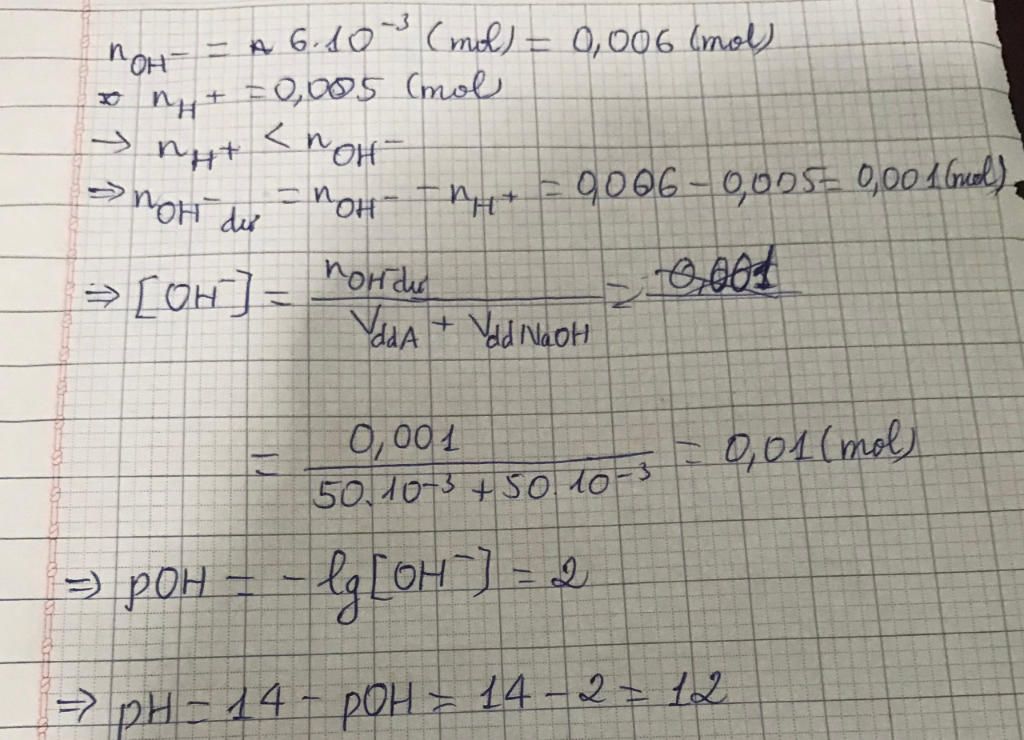 n_OH⁻ = 6.10⁻³ (mol) = 0,006 (mol)
n_H⁺ = 0,005 (mol)
→ n_H⁺ < n_OH⁻
⇒ n_OH⁻ dư = n_OH⁻ - n_H⁺ = 0,006 - 0,005 = 0,001 (mol).
⇒ [OH⁻] = n_OH⁻ dư / (V_ddA + V_ddNaOH) = 0,001
= 0,001 / (50.10⁻³ + 50.10⁻³) = 0,01 (mol)
⇒ pOH = -lg[OH⁻] = 2
⇒ pH = 14 - pOH = 14 - 2 = 12